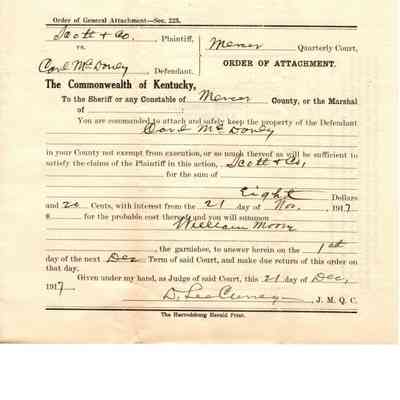 Order of General Attachment—Sec. 225.
Scott & Co. Plaintiff,
vs.
Mercer Quarterly Court,
Carl McDoney Defendant.
ORDER OF ATTACHMENT.
The Commonwealth of Kentucky,
To the Sheriff or any Constable of Mercer County, or the Marshal
of :
You are commanded to attach and safely keep the property of the Defendant
Carl McDoney
in your County not exempt from execution, or so much thereof as will be sufficient to
satisfy the claims of the Plaintiff in this action, Scott & Co,
for the sum of
Eight Dollars
and 20 Cents, with interest from the 21 day of Nov. 1917
$ for the probable cost thereof and you will summon
William Moore
, the garnishee, to answer herein on the 1st
day of the next Dec Term of said Court, and make due return of this order on
that day.
Given under my hand, as Judge of said Court, this 21 day of Dec,
1917.
D. Lee Currey, J. M. Q. C.
The Harrodsburg Herald Print.